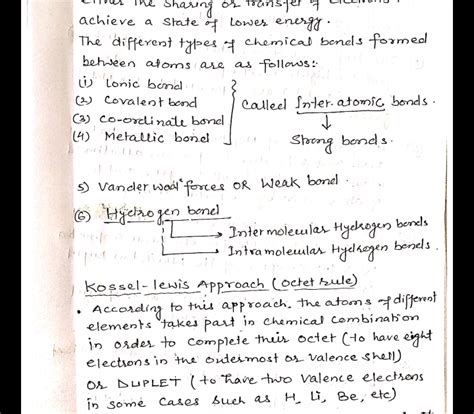 Either the sharing or transfer of electrons,
achieve a state of lower energy.
The different types of chemical bonds formed
between atoms are as follows:-
(1) Ionic bond
(2) Covalent bond
(3) Co-ordinate bond
(4) Metallic bond
Called Inter-atomic bonds.
Strong bonds.
5) Vander waal forces OR Weak bond.
(6) Hydrogen bond
Intermolecular Hydrogen bonds
Intramolecular Hydrogen bonds.
Kossel-lewis Approach (octet rule)
• According to this approach, the atoms of different
elements takes part in chemical combination
in order to complete their octet (to have eight
electrons in the outermost or valence shell)
or DUPLET (to have two valence electrons
in some cases such as H, Li, Be, etc)